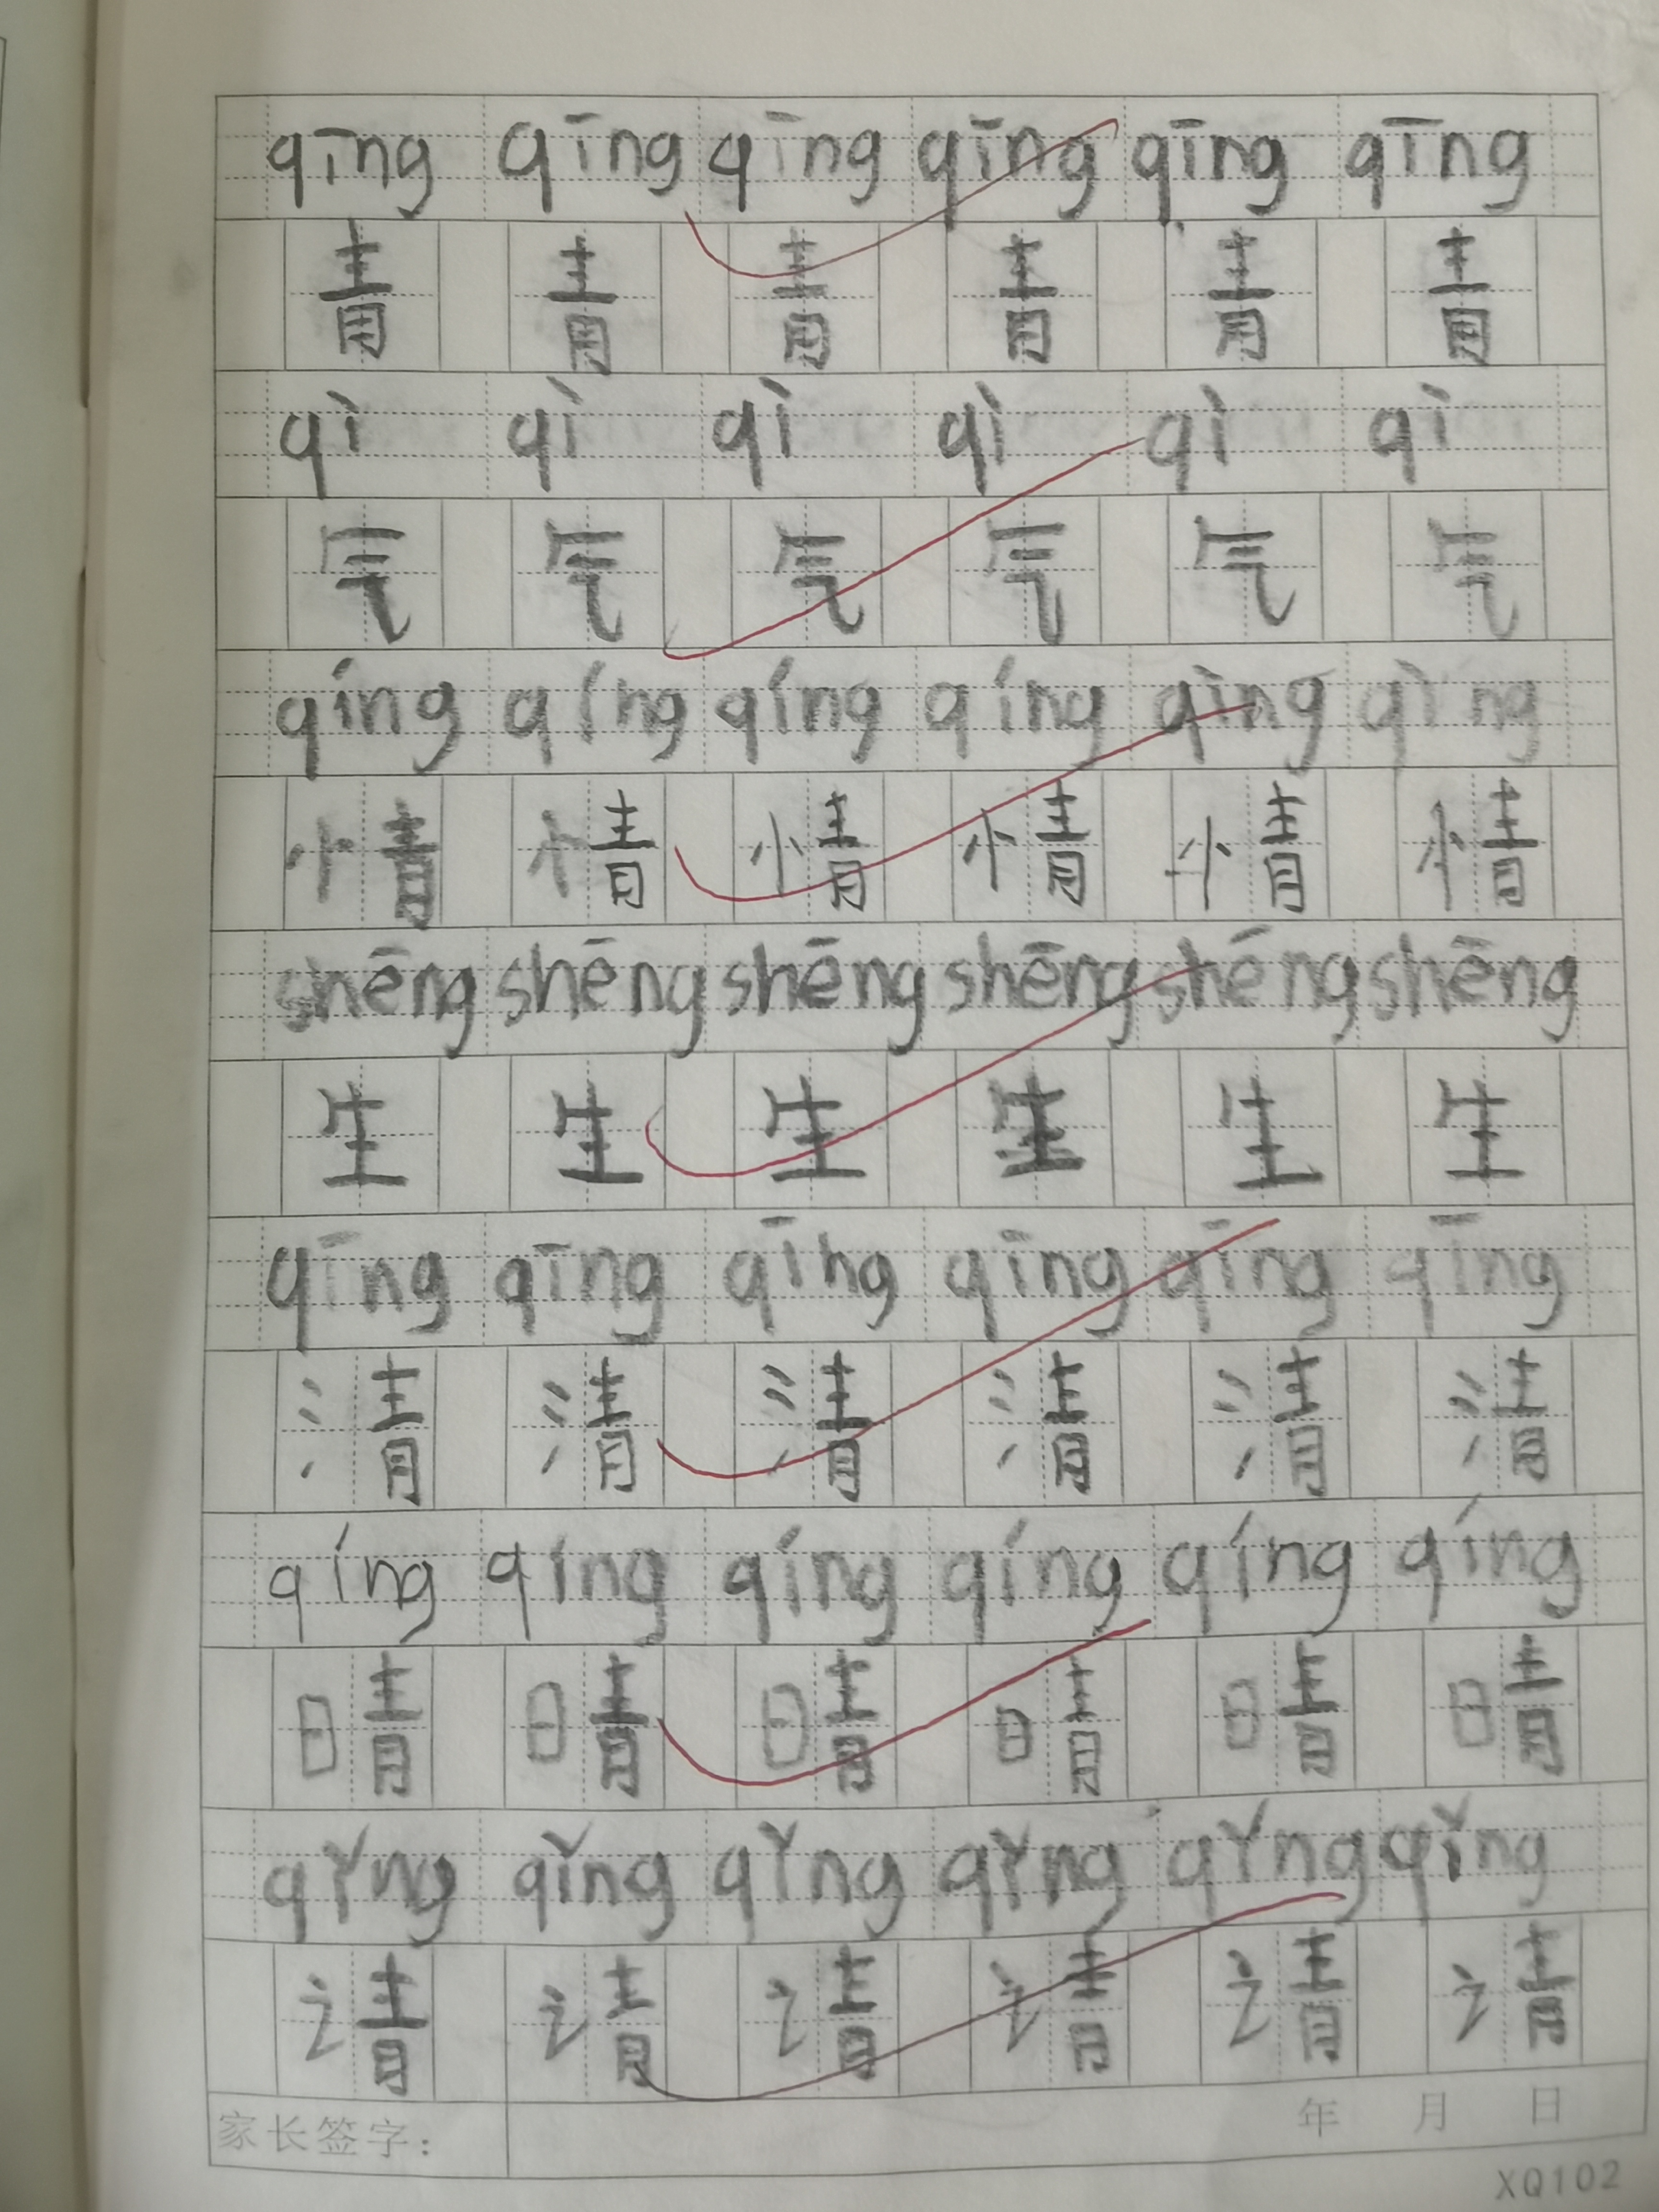 qīng qīng qīng qīng qīng qīng
青 青 青 青 青 青
qì qì qì qì qì qì
气 气 气 气 气 气
qíng qíng qíng qíng qìng qìng
情 情 情 情 情 情
shēng shēng shēng shēng shēng shēng
生 生 生 生 生 生
qīng qīng qīng qīng qīng qīng
清 清 清 清 清 清
qíng qíng qíng qíng qíng qíng
晴 晴 晴 晴 晴 晴
qǐng qǐng qǐng qǐng qǐng qǐng
请 请 请 请 请 请
家长签字： 年 月 日
XQ102